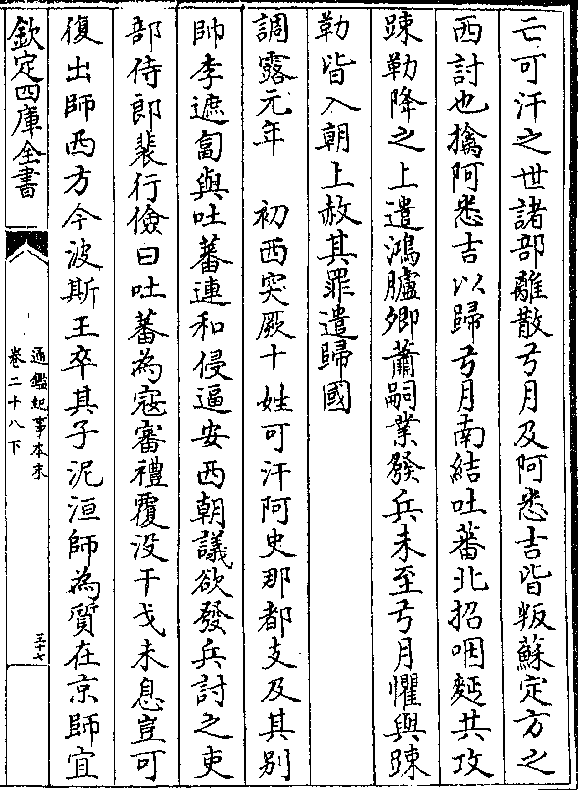 亡可汗之世諸部離散弓月及阿悉吉皆叛蘇定方之
西討也擒阿悉吉以歸弓月南結吐蕃北招咽麫共攻
踈勒降之上遣鴻臚卿蕭嗣業發兵未至弓月懼與踈
勒皆入朝上赦其罪遣歸國
調露元年　初西突厥十姓可汗阿史那都支及其別
帥李遮匐與吐蕃連和侵逼安西朝議欲發兵討之吏
部侍郎裴行儉曰吐蕃為寇審禮覆没干戈未息豈可
復出師西方今波斯王卒其子泥洹師為質在京師宜
欽定四庫全書
通鑑紀事本末
卷二十八下
三十七